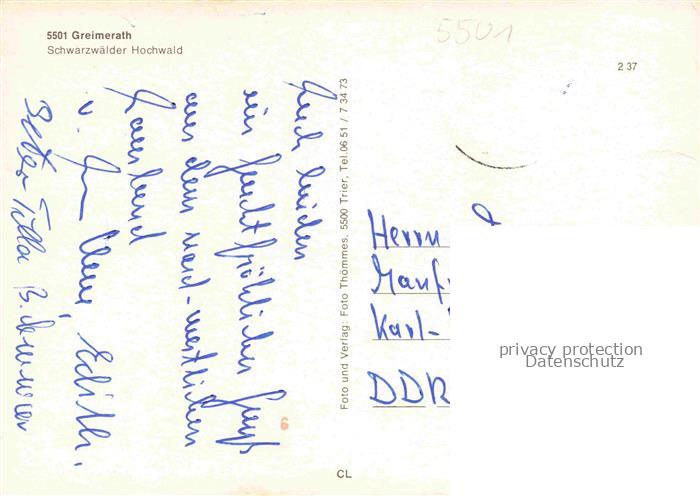 5501 Greimerath
Schwarzwälder Hochwald
5501
2 37
Euch beiden
ein feuchtfröhlicher Gruß
aus dem nord-westlichen
u.
Edith.
Foto und Verlag: Foto Thömmes, 5500 Trier, Tel. 06 51 / 7 34 73
Herrn
Manf
Karl-
DDR
privacy protection
Datenschutz
6
CL